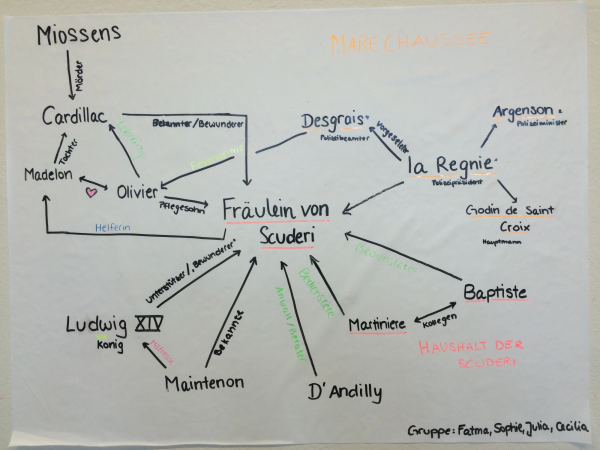 Miossens
MARECHAUSSEE
Mörder
Cardillac
Bekannter/Bewunderer
Desgrais
Polizeibeamter
Vorgesetzter
Argenson
Polizeiminister
Lehrling
Tochter
Madelon
Olivier
Pflegesohn
la Regnie
Polizeipräsident
Fräulein von
Scuderi
Godin de Saint
Croix
Hauptmann
Helferin
Unterstützer/"Bewunderer"
Bekannte
Bedienstete
Baptiste
Ludwig XIV
König
Martiniere
Kollegen
HAUSHALT DER
SCUDERI
Maintenon
D'Andilly
Gruppe: Fatma, Sophie, Julia, Cecilia